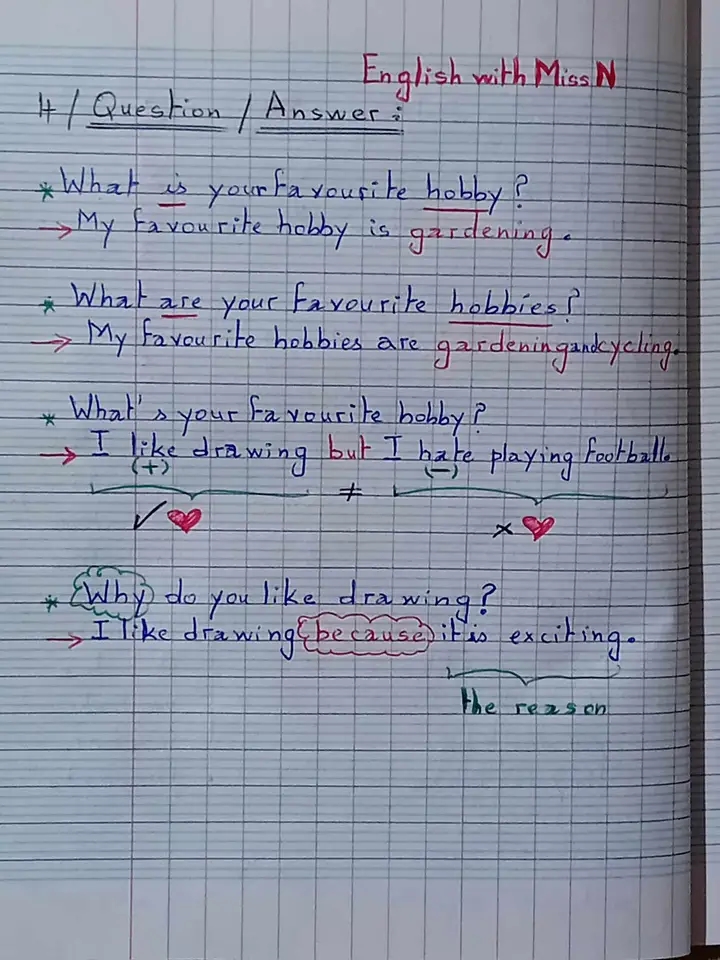 English with Miss N
4/ Question / Answer:
* What is your favourite hobby?
→ My favourite hobby is gardening.
* What are your favourite hobbies?
→ My favourite hobbies are gardening and cycling.
* What's your favourite hobby?
→ I like drawing but I hate playing football.
(+) (−)
≠
✓❤ ×❤
* Why do you like drawing?
→ I like drawing because it is exciting.
the reason